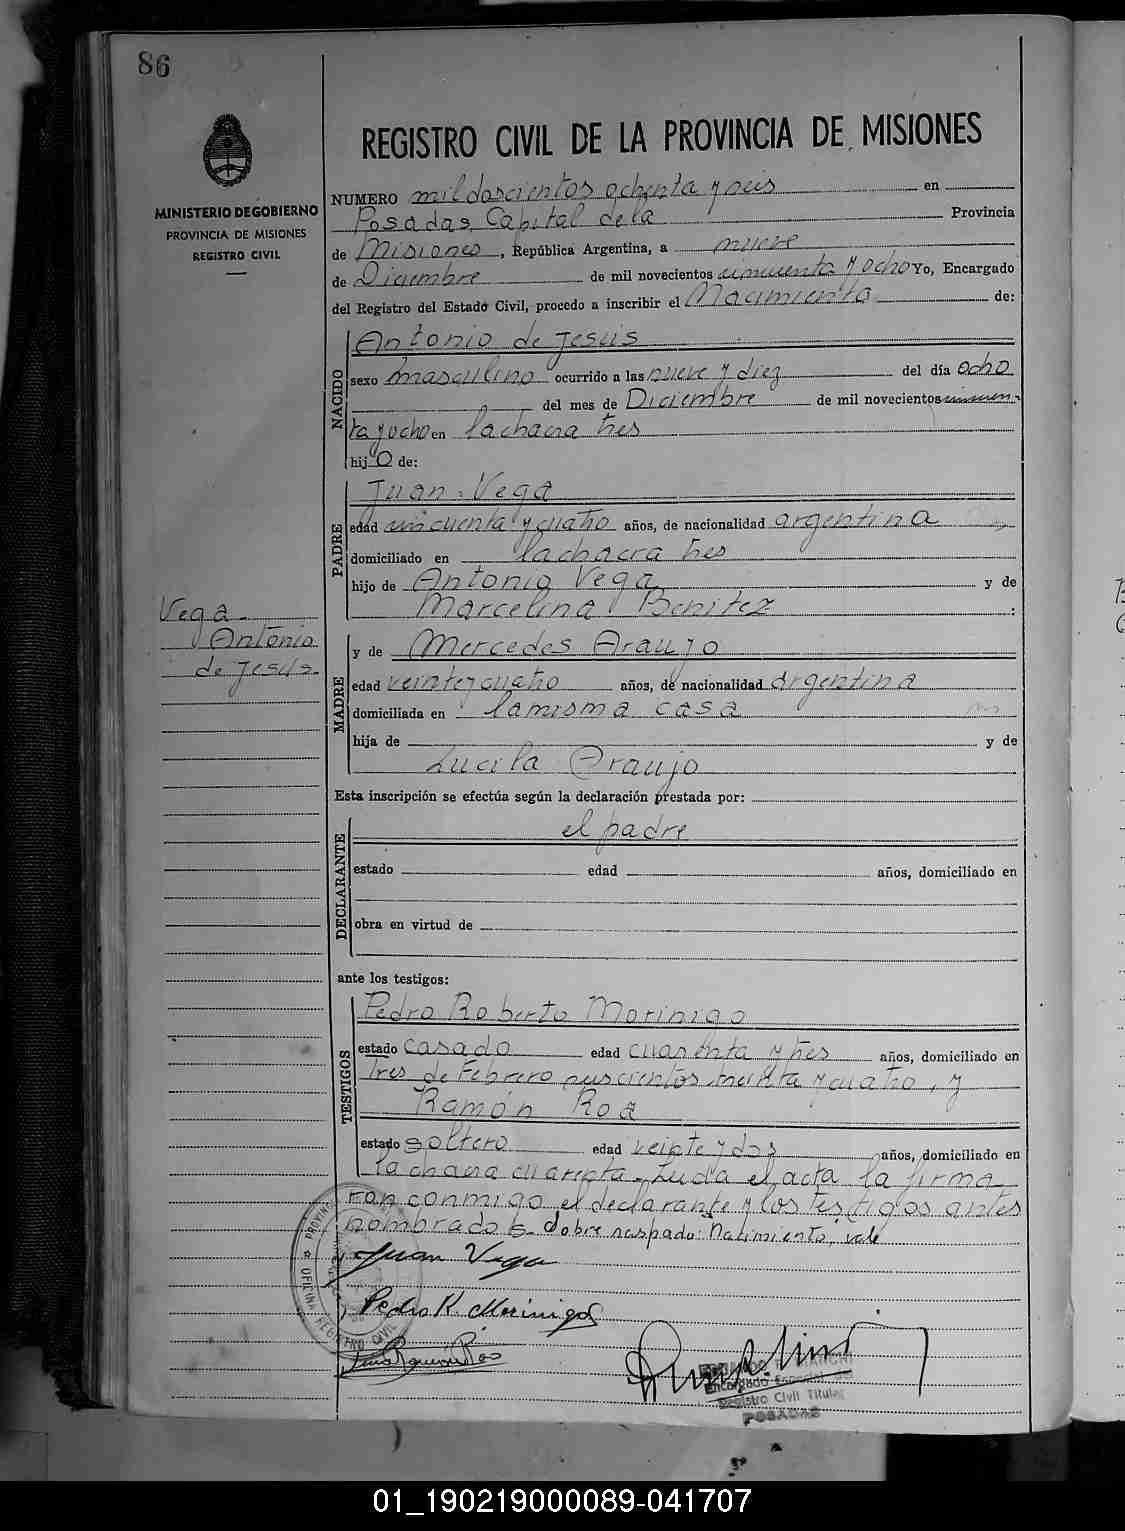 86
REGISTRO CIVIL DE LA PROVINCIA DE MISIONES
MINISTERIO DE GOBIERNO
PROVINCIA DE MISIONES
REGISTRO CIVIL
NUMERO mil doscientos ochenta y seis en
Posadas, Capital de la Provincia
de Misiones, República Argentina, a nueve
de Diciembre de mil novecientos cincuenta y ocho Yo, Encargado
del Registro del Estado Civil, procedo a inscribir el Nacimiento de:
NACIDO
Antonio de Jesús
sexo masculino ocurrido a las nueve y diez del día ocho
del mes de Diciembre de mil novecientos cincuen-
ta y ocho en la chacra tres
hijo de:
PADRE
Juan Vega
edad cincuenta y cuatro años, de nacionalidad argentina
domiciliado en la chacra tres
hijo de Antonio Vega y de
Marcelina Benitez :
Vega
Antonio
de Jesús.
MADRE
y de Mercedes Araujo
edad veinte y cuatro años, de nacionalidad argentina
domiciliada en la misma casa
hija de y de
Lucila Araujo
Esta inscripción se efectúa según la declaración prestada por:
DECLARANTE
el padre
estado edad años, domiciliado en
obra en virtud de
ante los testigos:
TESTIGOS
Pedro Roberto Morinigo
estado casado edad cuarenta y tres años, domiciliado en
Tres de Febrero treinta y cuatro, y
Ramón Roa
estado soltero edad veinte y dos años, domiciliado en
la chacra cuarenta. Leída el acta la firma
ron conmigo el declarante y los testigos antes
nombrados. Sobre raspado: Nacimiento, vale
Juan Vega
Pedro R. Morinigo
Encargado Especial
Registro Civil Titular
POSADAS
OFICINA REGISTRO CIVIL
01_190219000089-041707